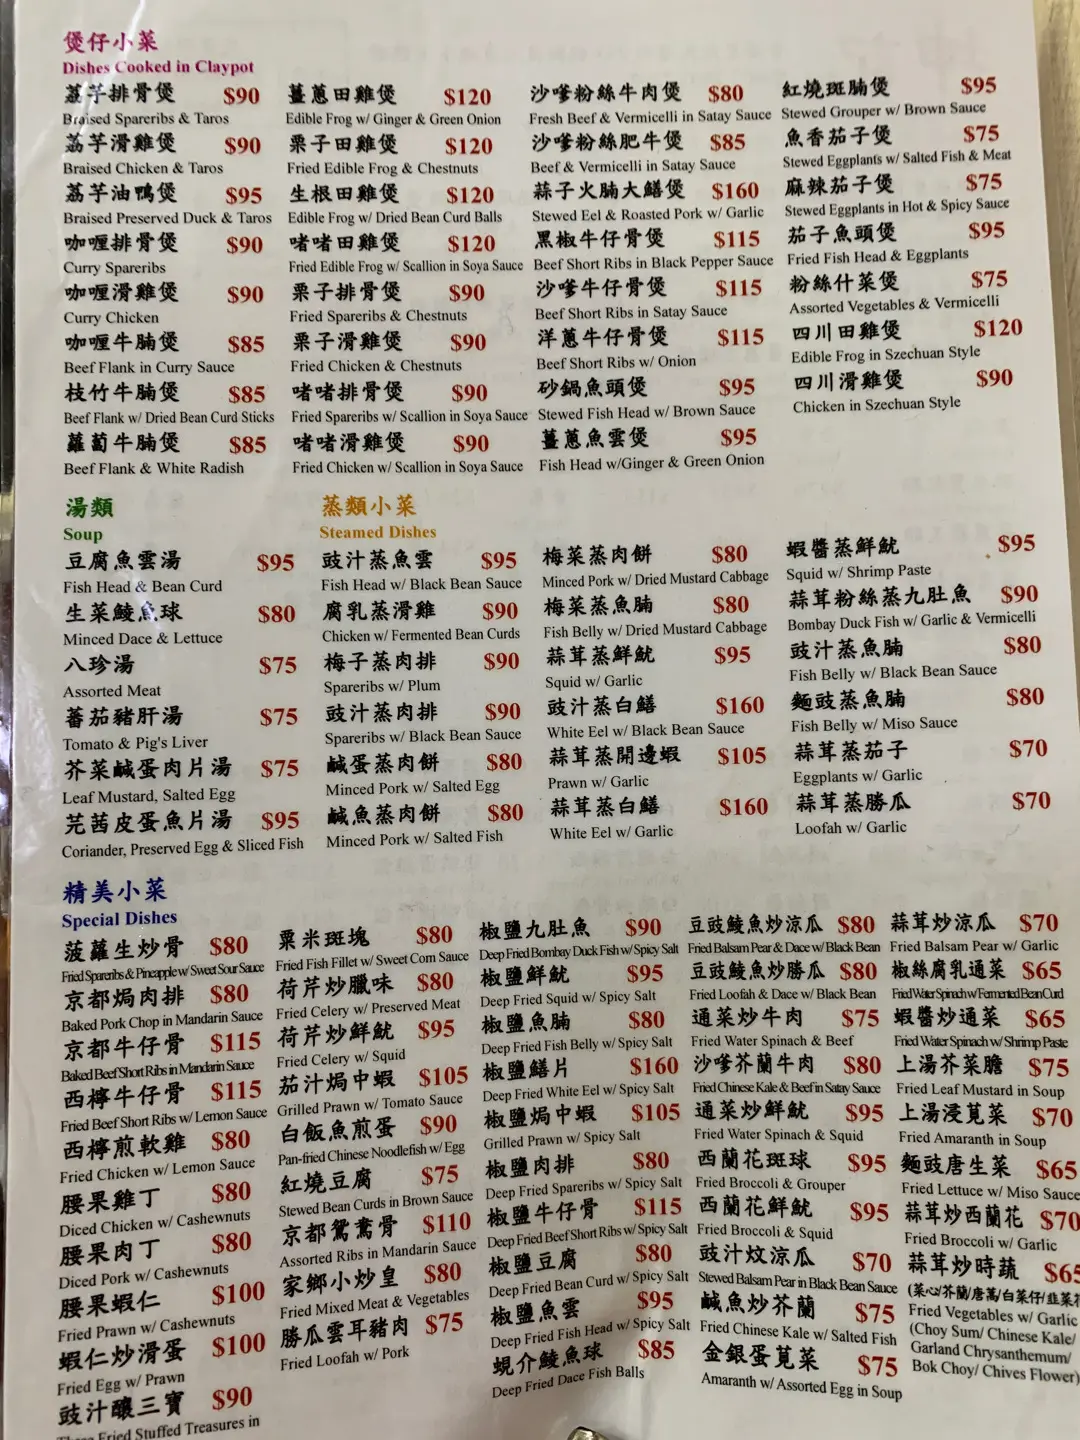 煲仔小菜
Dishes Cooked in Claypot
荔芋排骨煲 $90
Braised Spareribs & Taros
荔芋滑雞煲 $90
Braised Chicken & Taros
荔芋油鴨煲 $95
Braised Preserved Duck & Taros
咖喱排骨煲 $90
Curry Spareribs
咖喱滑雞煲 $90
Curry Chicken
咖喱牛腩煲 $85
Beef Flank in Curry Sauce
枝竹牛腩煲 $85
Beef Flank w/ Dried Bean Curd Sticks
蘿蔔牛腩煲 $85
Beef Flank & White Radish
薑蔥田雞煲 $120
Edible Frog w/ Ginger & Green Onion
栗子田雞煲 $120
Fried Edible Frog & Chestnuts
生根田雞煲 $120
Edible Frog w/ Dried Bean Curd Balls
啫啫田雞煲 $120
Fried Edible Frog w/ Scallion in Soya Sauce
栗子排骨煲 $90
Fried Spareribs & Chestnuts
栗子滑雞煲 $90
Fried Chicken & Chestnuts
啫啫排骨煲 $90
Fried Spareribs w/ Scallion in Soya Sauce
啫啫滑雞煲 $90
Fried Chicken w/ Scallion in Soya Sauce
沙嗲粉絲牛肉煲 $80
Fresh Beef & Vermicelli in Satay Sauce
沙嗲粉絲肥牛煲 $85
Beef & Vermicelli in Satay Sauce
蒜子火腩大鱔煲 $160
Stewed Eel & Roasted Pork w/ Garlic
黑椒牛仔骨煲 $115
Beef Short Ribs in Black Pepper Sauce
沙嗲牛仔骨煲 $115
Beef Short Ribs in Satay Sauce
洋蔥牛仔骨煲 $115
Beef Short Ribs w/ Onion
砂鍋魚頭煲 $95
Stewed Fish Head w/ Brown Sauce
薑蔥魚雲煲 $95
Fish Head w/Ginger & Green Onion
紅燒斑腩煲 $95
Stewed Grouper w/ Brown Sauce
魚香茄子煲 $75
Stewed Eggplants w/ Salted Fish & Meat
麻辣茄子煲 $75
Stewed Eggplants in Hot & Spicy Sauce
茄子魚頭煲 $95
Fried Fish Head & Eggplants
粉絲什菜煲 $75
Assorted Vegetables & Vermicelli
四川田雞煲 $120
Edible Frog in Szechuan Style
四川滑雞煲 $90
Chicken in Szechuan Style
湯類
Soup
豆腐魚雲湯 $95
Fish Head & Bean Curd
生菜鯪魚球 $80
Minced Dace & Lettuce
八珍湯 $75
Assorted Meat
蕃茄豬肝湯 $75
Tomato & Pig's Liver
芥菜鹹蛋肉片湯 $75
Leaf Mustard, Salted Egg
芫茜皮蛋魚片湯 $95
Coriander, Preserved Egg & Sliced Fish
蒸類小菜
Steamed Dishes
豉汁蒸魚雲 $95
Fish Head w/ Black Bean Sauce
腐乳蒸滑雞 $90
Chicken w/ Fermented Bean Curds
梅子蒸肉排 $90
Spareribs w/ Plum
豉汁蒸肉排 $90
Spareribs w/ Black Bean Sauce
鹹蛋蒸肉餅 $80
Minced Pork w/ Salted Egg
鹹魚蒸肉餅 $80
Minced Pork w/ Salted Fish
梅菜蒸肉餅 $80
Minced Pork w/ Dried Mustard Cabbage
梅菜蒸魚腩 $80
Fish Belly w/ Dried Mustard Cabbage
蒜茸蒸鮮魷 $95
Squid w/ Garlic
豉汁蒸白鱔 $160
White Eel w/ Black Bean Sauce
蒜茸蒸開邊蝦 $105
Prawn w/ Garlic
蒜茸蒸白鱔 $160
White Eel w/ Garlic
蝦醬蒸鮮魷 $95
Squid w/ Shrimp Paste
蒜茸粉絲蒸九肚魚 $90
Bombay Duck Fish w/ Garlic & Vermicelli
豉汁蒸魚腩 $80
Fish Belly w/ Black Bean Sauce
麵豉蒸魚腩 $80
Fish Belly w/ Miso Sauce
蒜茸蒸茄子 $70
Eggplants w/ Garlic
蒜茸蒸勝瓜 $70
Loofah w/ Garlic
精美小菜
Special Dishes
菠蘿生炒骨 $80
Fried Spareribs & Pineapple w/ Sweet Sour Sauce
京都焗肉排 $80
Baked Pork Chop in Mandarin Sauce
京都牛仔骨 $115
Baked Beef Short Ribs in Mandarin Sauce
西檸牛仔骨 $115
Fried Beef Short Ribs w/ Lemon Sauce
西檸煎軟雞 $80
Fried Chicken w/ Lemon Sauce
腰果雞丁 $80
Diced Chicken w/ Cashewnuts
腰果肉丁 $80
Diced Pork w/ Cashewnuts
腰果蝦仁 $100
Fried Prawn w/ Cashewnuts
蝦仁炒滑蛋 $100
Fried Egg w/ Prawn
豉汁釀三寶 $90
Fried Stuffed Treasures in
粟米斑塊 $80
Fried Fish Fillet w/ Sweet Corn Sauce
荷芹炒臘味 $80
Fried Celery w/ Preserved Meat
荷芹炒鮮魷 $95
Fried Celery w/ Squid
茄汁焗中蝦 $105
Grilled Prawn w/ Tomato Sauce
白飯魚煎蛋 $90
Pan-fried Chinese Noodlefish w/ Egg
紅燒豆腐 $75
Stewed Bean Curds in Brown Sauce
京都鴛鴦骨 $110
Assorted Ribs in Mandarin Sauce
家鄉小炒皇 $80
Fried Mixed Meat & Vegetables
勝瓜雲耳豬肉 $75
Fried Loofah w/ Pork
椒鹽九肚魚 $90
Deep Fried Bombay Duck Fish w/ Spicy Salt
椒鹽鮮魷 $95
Deep Fried Squid w/ Spicy Salt
椒鹽魚腩 $80
Deep Fried Fish Belly w/ Spicy Salt
椒鹽鱔片 $160
Deep Fried White Eel w/ Spicy Salt
椒鹽焗中蝦 $105
Grilled Prawn w/ Spicy Salt
椒鹽肉排 $80
Deep Fried Spareribs w/ Spicy Salt
椒鹽牛仔骨 $115
Deep Fried Beef Short Ribs w/ Spicy Salt
椒鹽豆腐 $80
Deep Fried Bean Curd w/ Spicy Salt
椒鹽魚雲 $95
Deep Fried Fish Head w/ Spicy Salt
蜆介鯪魚球 $85
Deep Fried Dace Fish Balls
豆豉鯪魚炒涼瓜 $80
Fried Balsam Pear & Dace w/ Black Bean
豆豉鯪魚炒勝瓜 $80
Fried Loofah & Dace w/ Black Bean
通菜炒牛肉 $75
Fried Water Spinach & Beef
沙嗲芥蘭牛肉 $80
Fried Chinese Kale & Beef in Satay Sauce
通菜炒鮮魷 $95
Fried Water Spinach & Squid
西蘭花斑球 $95
Fried Broccoli & Grouper
西蘭花鮮魷 $95
Fried Broccoli & Squid
豉汁炆涼瓜 $70
Stewed Balsam Pear in Black Bean Sauce
鹹魚炒芥蘭 $75
Fried Chinese Kale w/ Salted Fish
金銀蛋莧菜 $75
Amaranth w/ Assorted Egg in Soup
蒜茸炒涼瓜 $70
Fried Balsam Pear w/ Garlic
椒絲腐乳通菜 $65
Fried Water Spinach w/ Fermented Bean Curd
蝦醬炒通菜 $65
Fried Water Spinach w/ Shrimp Paste
上湯芥菜膽 $75
Fried Leaf Mustard in Soup
上湯浸莧菜 $70
Fried Amaranth in Soup
麵豉唐生菜 $65
Fried Lettuce w/ Miso Sauce
蒜茸炒西蘭花 $70
Fried Broccoli w/ Garlic
蒜茸炒時蔬 $65
(菜心/芥蘭/唐蒿/白菜仔/韮菜花
Fried Vegetables w/ Garlic
(Choy Sum/ Chinese Kale/
Garland Chrysanthemum/
Bok Choy/ Chives Flower)